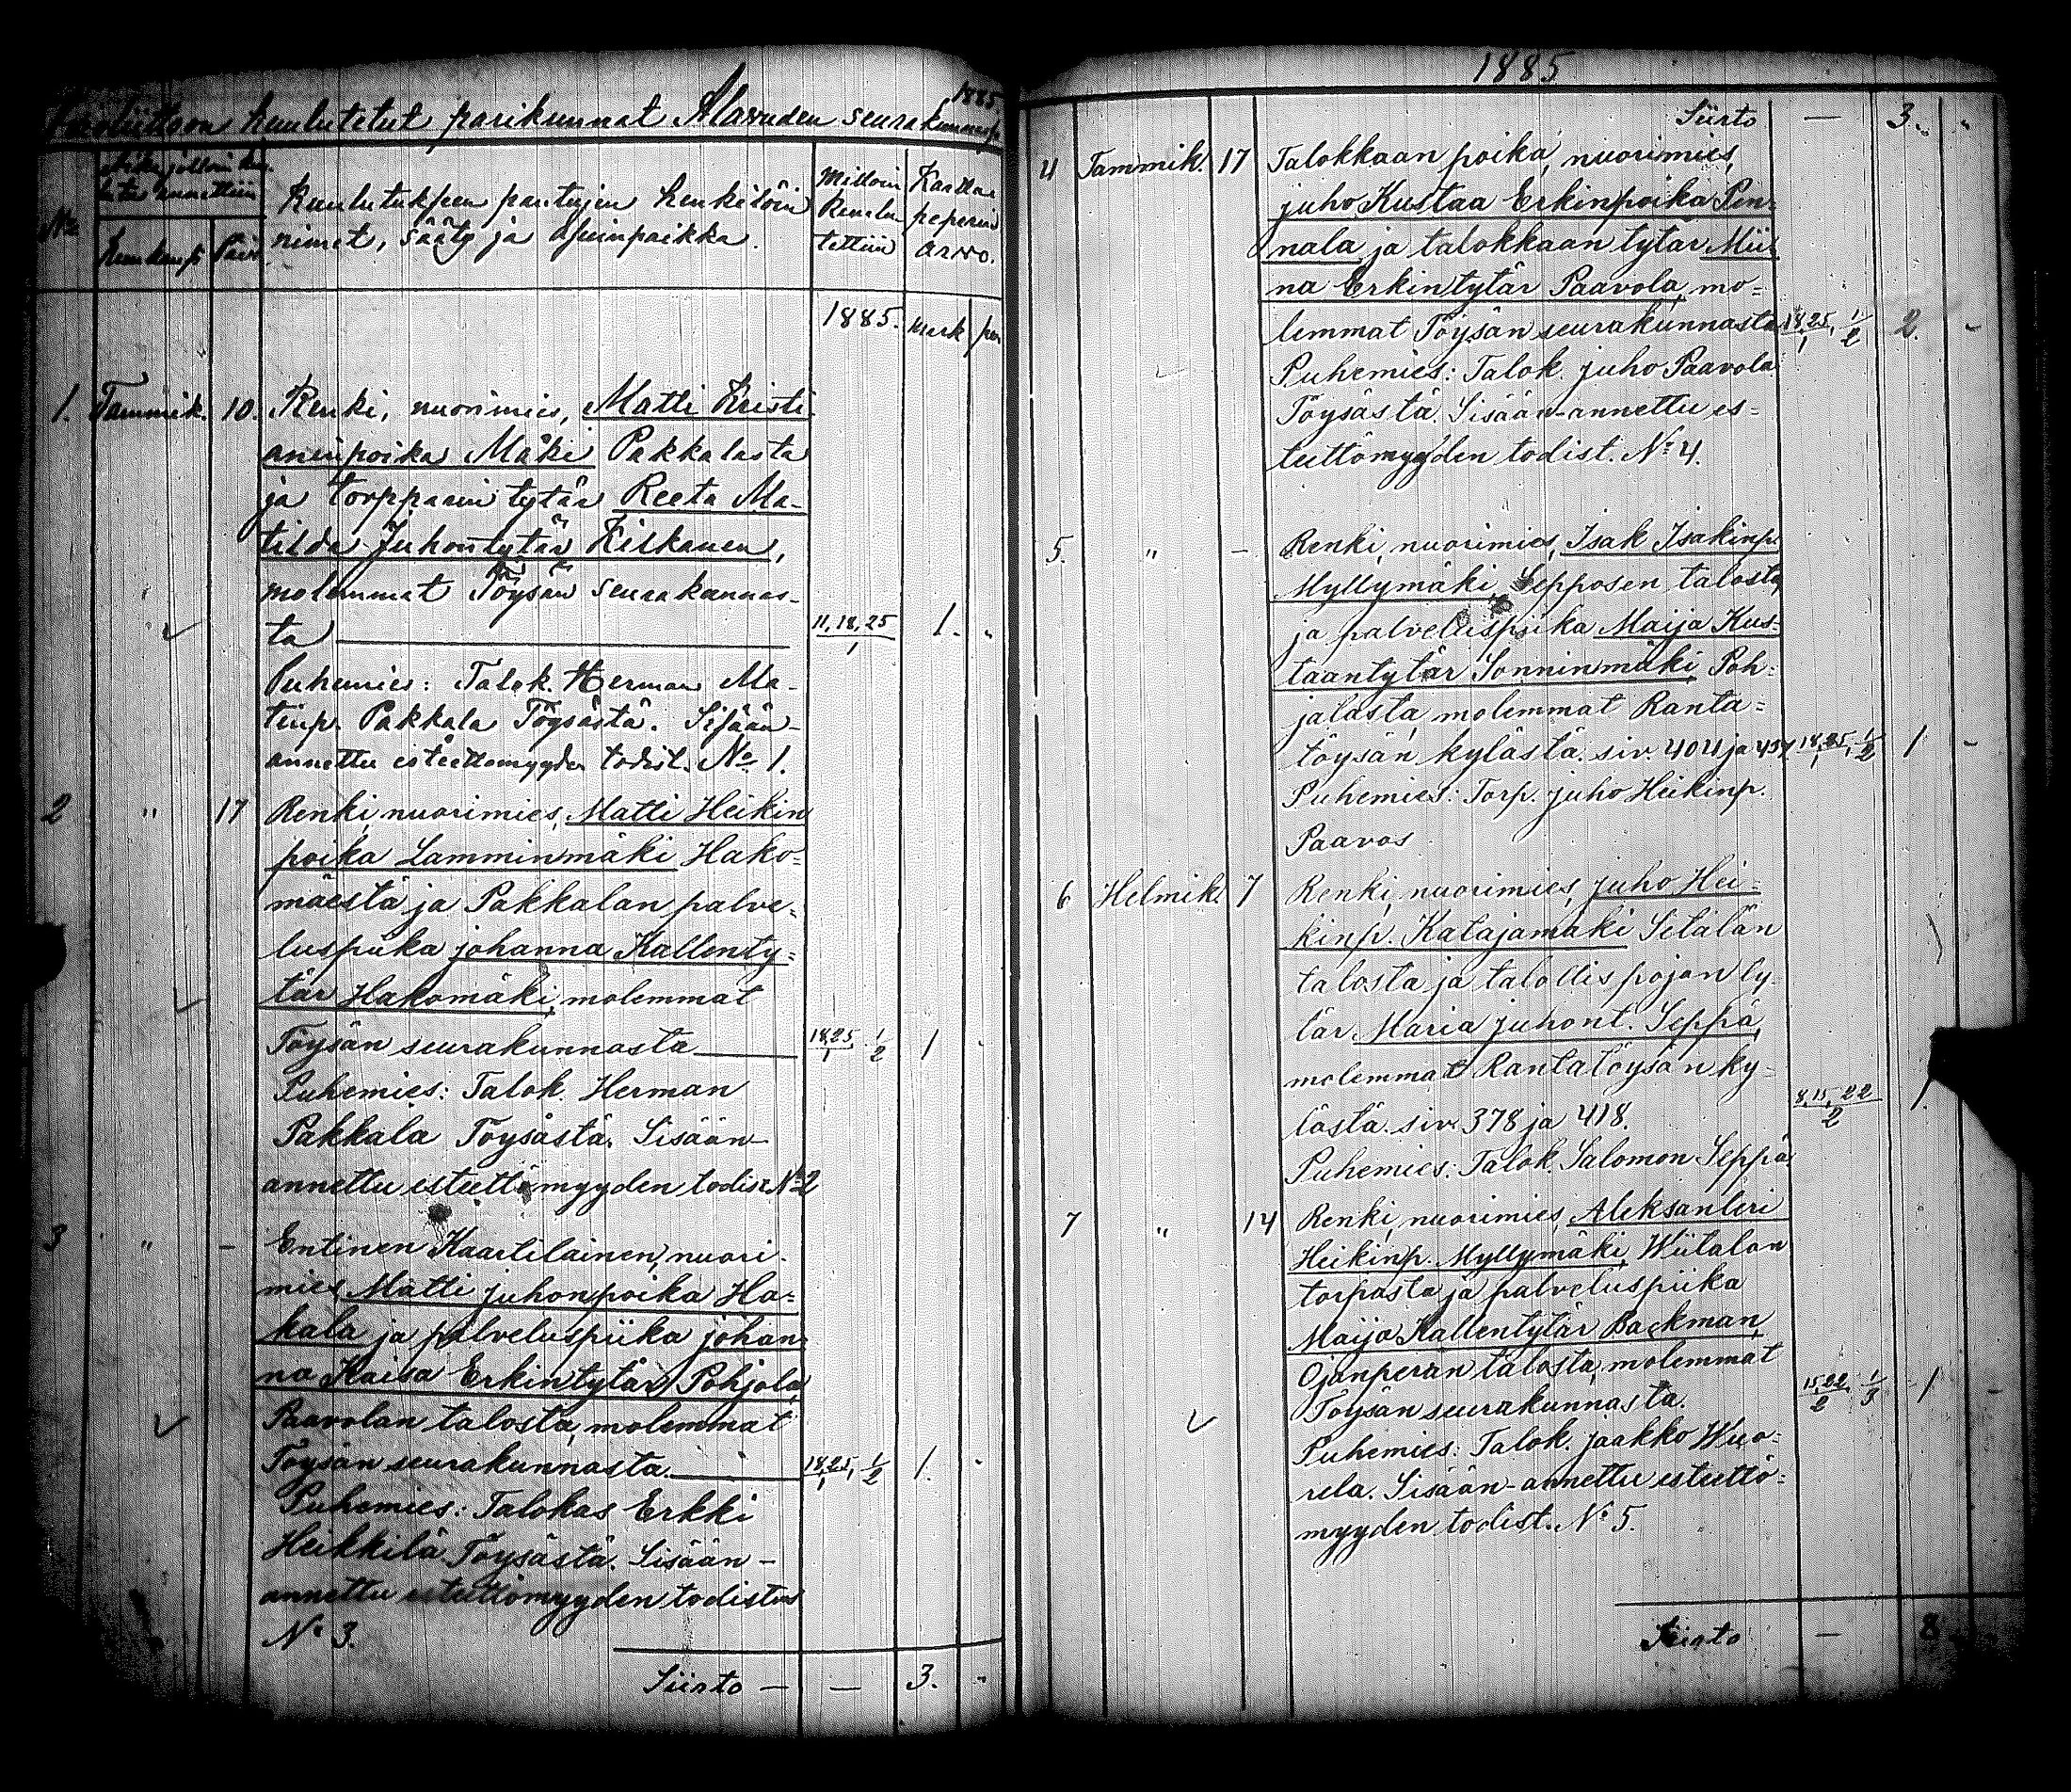 1885.
kuulutetut parikunnat Alavuden seurakunnassa
No
Kuulutukseen pantujen henkilöin
nimet, sääty ja asuinpaikka.
Kuukausi
Päivä
Milloin
kuulu
tettiin
Kartta
paperin
arvo.
1885.
mark
pen
1. Tammik. 10. Renki, nuorimies, Matti Kristi
aninpoika Mäki Pakkalasta
ja torpparin tytär Reeta Ma-
tilda Juhontytär Kiskanen,
molemmat Töysän seurakunnas-
ta 11, 18, 25/1 1. "
Puhemies: Talok. Herman Ma-
tinp. Pakkala Töysästä. Sisään-
annettu esteettomyyden todist. No 1.
2 " 17 Renki, nuorimies, Matti Heikin
poika Lamminmäki Hako=
mäestä ja Pakkalan palve=
luspiika johanna Kallenty=
tär Hakomäki, molemmat
Töysän seurakunnasta 18,25/1. 1/2 1 "
Puhemies: Talok. Herman
Pakkala Töysästä. Sisään-
annettu esteettömyyden todist No 2
3 " - Entinen Kaartilainen, nuori-
mies, Matti juhonpoika Ha=
kala ja palveluspiika johan=
na Kaisa Erkintytär Pohjola,
Paavolan talosta, molemmat
Töysän seurakunnasta. 18,25/1, 1/2 1. "
Puhemies: Talokas Erkki
Heikkilä Töysästä. Sisään-
annettu esteettömyyden todistus
No 3.
Siirto - - 3. "
1885
Siirto - 3. "
4 Tammik. 17 Talokkaan poika, nuorimies,
juho Kustaa Erkinpoika Pen=
nala ja talokkaan tytär Mii=
na Erkintytär Paavola, mo=
lemmat Töysän seurakunnasta 18,25/1, 1/2 2. -
Puhemies: Talok. juho Paavola
Töysästä. Sisään-annettu es=
teettömyyden todist. No 4.
5. " - Renki, nuorimies, Isak Isakinp.
Myllymäki, Sepposen talosta,
ja palveluspiika Maija Kus=
taantytär Sonninmäki, Poh=
jalasta, molemmat Ranta=
töysän kylästä. siv. 404 ja 437. 18,25/1, 1/2 1 -
Puhemies: Torp. juho Heikinp.
Paavos
6 Helmik. 7 Renki, nuorimies, juho Hei=
kinp. Katajamäki Setälän
talosta ja talollis pojan ty-
tär Maria juhont. Seppä,
molemmat Rantatöysän ky-
lästä. siv. 378 ja 418. 8,15,22/2 1.
Puhemies: Talok. Salomon Seppä.
7 " 14 Renki, nuorimies, Aleksanteri
Heikinp. Myllymäki, Wiitalan
torpasta ja palveluspiika
Maija Kallentytär Backman,
Ojanperän talosta, molemmat
Töysän seurakunnasta. 15,22/2, 1/3 1 -
Puhemies: Talok. jaakko Wuo=
rela. Sisään-annettu esteettö=
myyden todist. No 5.
Siirto - 8 -